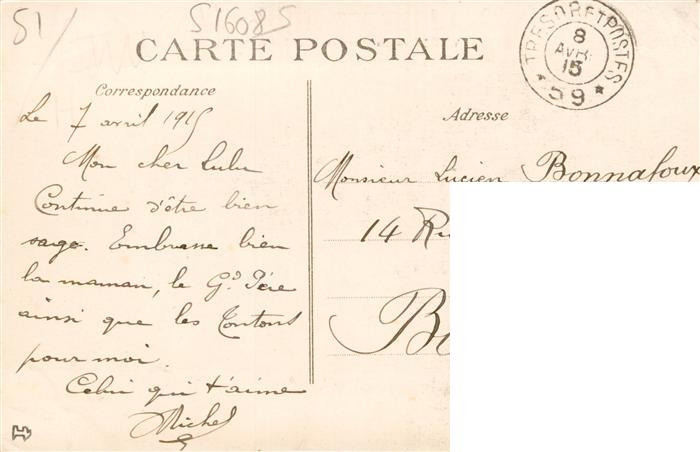 51/
51608S
CARTE POSTALE
TRESOR ET POSTES
8
AVR.
15
* 59 *
Correspondance
Le 7 avril 1915
Mon cher Lulu
Continue d'être bien
sage. Embrasse bien
la maman, le Gd Père
ainsi que les Tontons
pour moi.
Celui qui t'aime
Michel
Adresse
Monsieur Lucien Bonnafoux
14